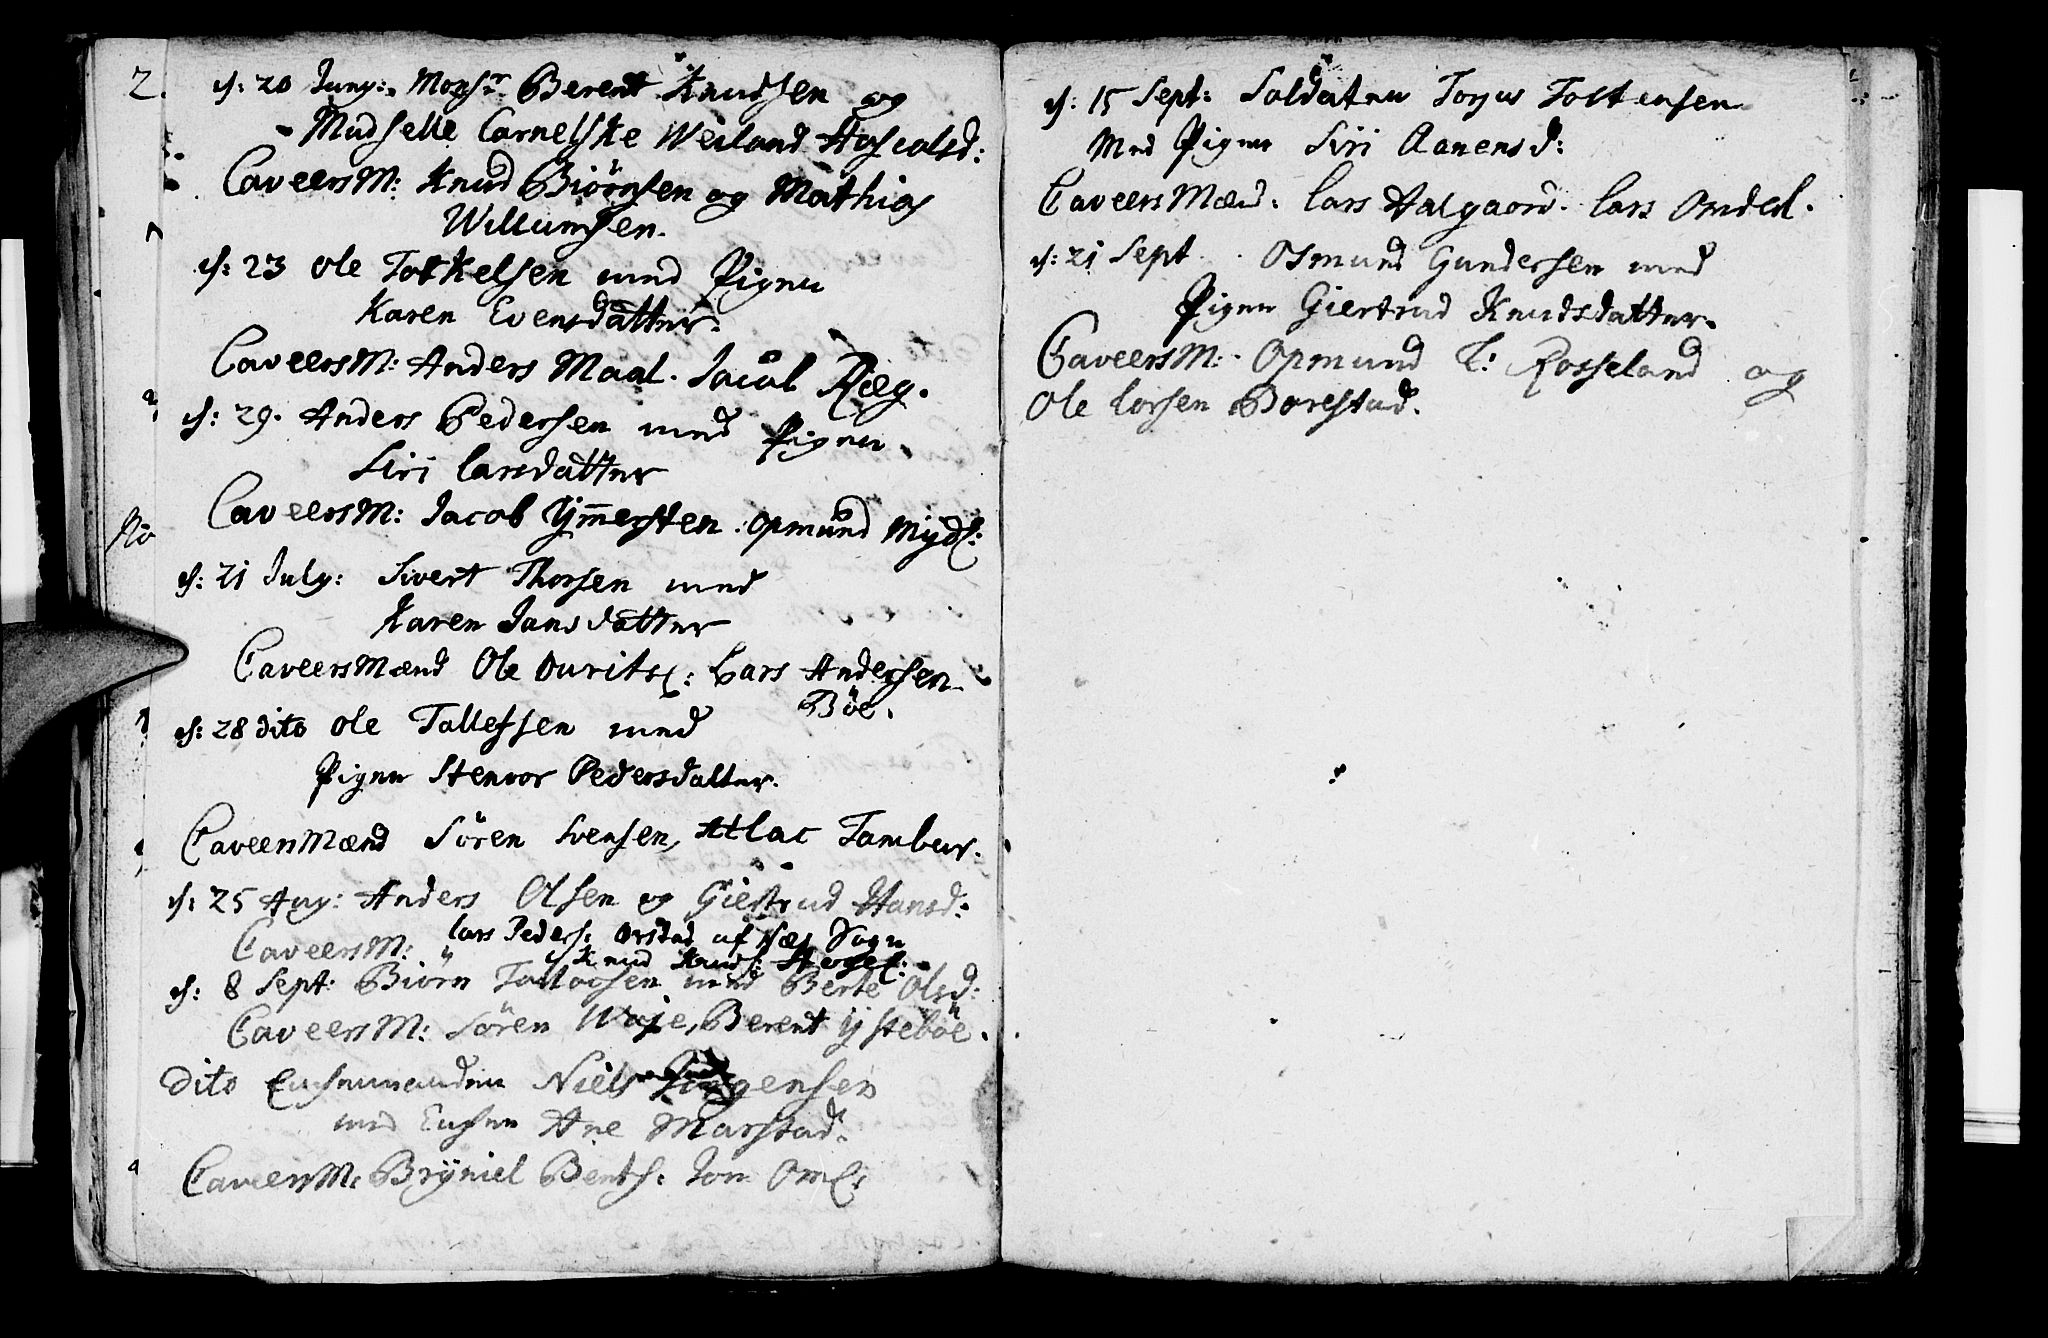 2.
d: 20 Juny: Monsr. Berent Knudsen og
Madselle Carnelske Weiland Ascalsd:
CaveersM: Knud Biörnsen og Mathias
Willumsen.
d: 23 Ole Torkelsen med Pigen
Karen Evensdatter.
CaveersM: Anders Maal. Jacob Ræg.
d: 29. Anders Pedersen med Pigen
Siri Larsdatter
CaveersM: Jacob Ymersten. Opmund Myds:
d: 21 July: Sivert Thorsen med
Karen Jansdatter
CaveersMænd Ole Ourits: Lars Andersen
Böe.
d: 28 dito Ole Tallefsen med
Pigen Stenvor Pedersdatter.
CaveersMænd Sören Svensen, Atlac Tambur.
d: 25 Aug: Anders Olsen og Giertrud Hansd:
CaveersM: Lars Peders: Orstad af Næs Sogn
Knud Knuds:
d: 8 Sept: Biörn Tollagsen med Berte Olsd:
CaveersM: Sören Waje, Berent Ysteböe.
Dito Enkemanden Niels Jörgensen
med Enken Ane Marstad.
CaveersM: Bryniel Bents: Jon Oms:
d: 15 Sept: Soldaten Torjus Tostensen
Med Pigen Siri Aanensd:
CaveersMænd. Lars Aalgaard. Lars Omdal.
d: 21 Sept. Osmund Gundersen med
Pigen Giertrud Knudsdatter.
CaveersM: Opmund T: Rosseland og
Ole Larsen Borestad.